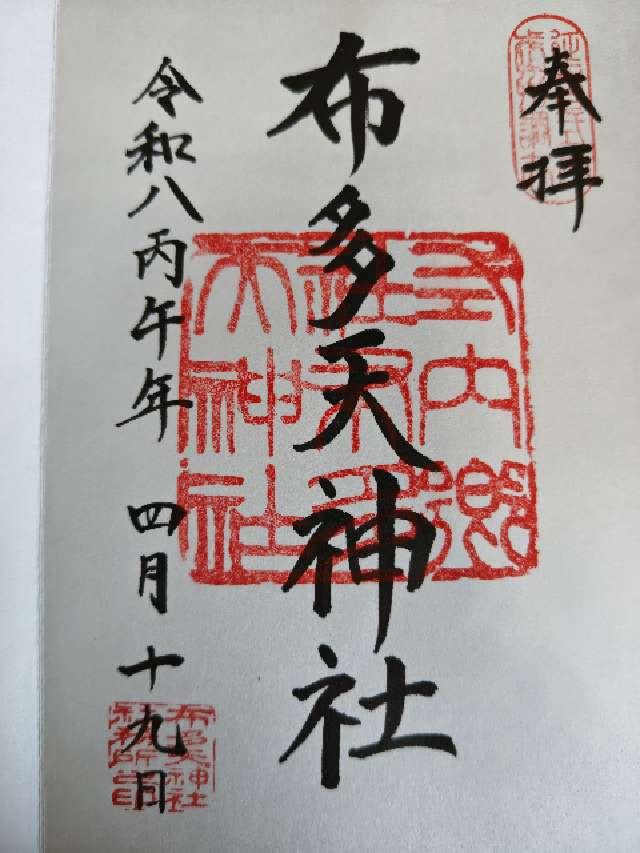 奉拝
布多天神社
令和八丙午年 四月 十九日
布多天神社
社務所之印